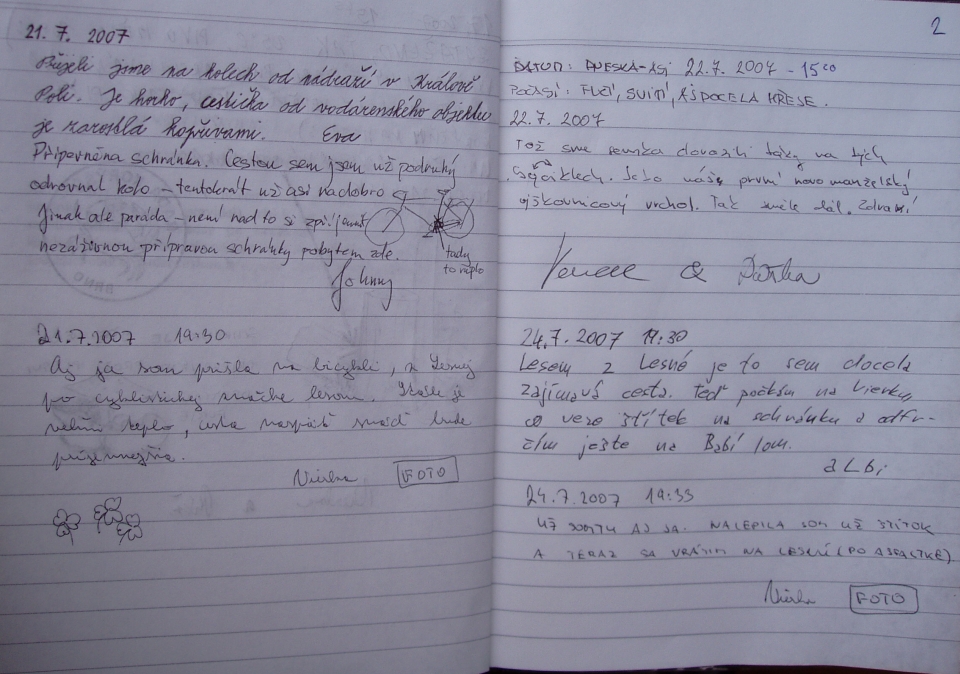 21. 7. 2007
Přijeli jsme na kolech od nádraží v Králově
Poli. Je horko, cestička od vodárenského objektu
je zarostlá kopřivami. Eva
Připevněna schránka. Cestou sem jsem už podruhý
odrovnal kolo – tentokrát už asi nadobro
Jinak ale paráda – není nad to si zpříjemnit
nezáživnou přípravou schránky pobytem zde.
tady
to ruplo
Johnny
21.7.2007 19:30
Aj ja som prišla na bicykli, z Lesnej
po cyklistickej značke lesom. Stále je
veľmi teplo, cesta naspäť snáď bude
príjemnejšia.
Vierka FOTO
2
DATUM: DNESKA-ASI 22.7.2007 - 15 00
POČASÍ: FUČÍ, SVÍTÍ, DOCELA HŘESE.
22.7.2007
Tož sme dovozili taky na tých
Je to náš první novomanželský
vrchol. Tak dál. Zdraví
&
24.7.2007 19:30
Lesem z Lesné je to sem docela
zajímavá cesta. Teď počkám na Vierku,
co veze štítek na schránku a odfr-
čím ještě na Babí lom.
aLbi
24.7.2007 19:33
UŽ SOM TU AJ JA. NALEPILA SOM UŽ ŠTÍTOK
A TERAZ SA VRÁTIM NA LESNÚ (PO ASFALTKE).
Vierka FOTO